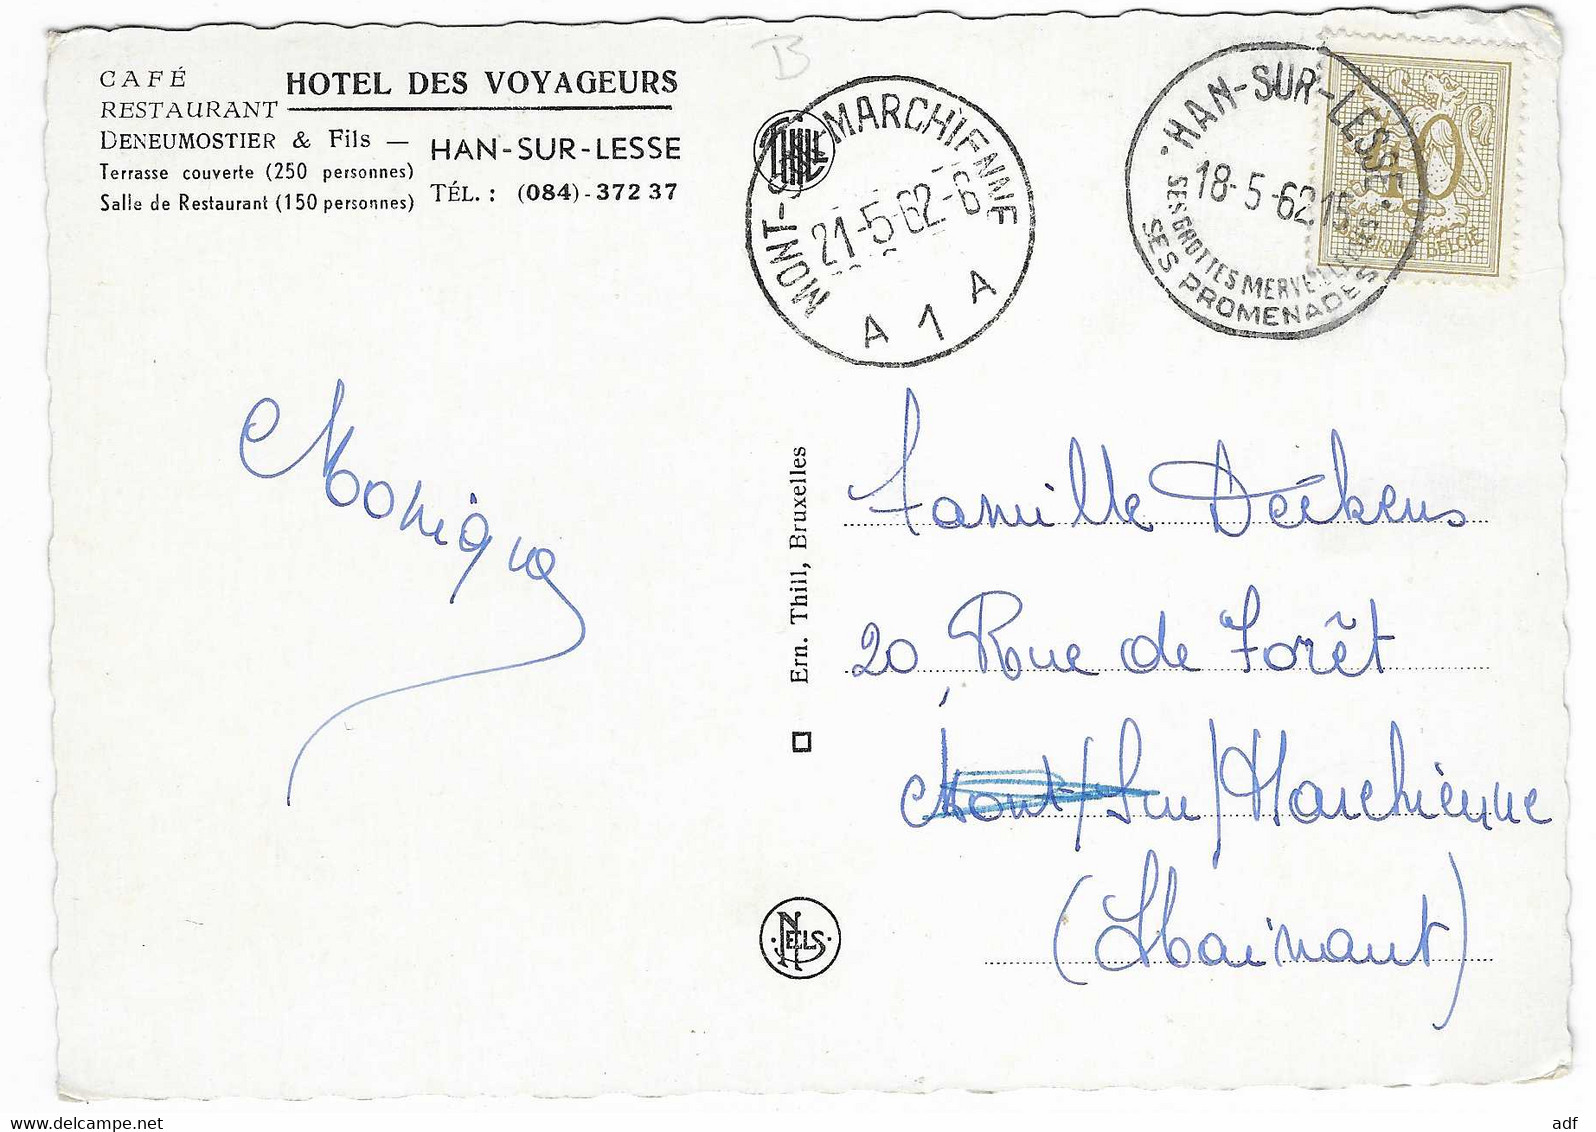 CAFÉ
RESTAURANT
HOTEL DES VOYAGEURS
DENEUMOSTIER & Fils —
HAN-SUR-LESSE
Terrasse couverte (250 personnes)
Salle de Restaurant (150 personnes)
TÉL. : (084) - 372 37
B
MONT-S-MARCHIENNE
21-5-62-6
A 1 A
THILL
HAN-SUR-LESSE
18-5-62 15
SES GROTTES MERVEILLEUSES
SES PROMENADES
BELGIQUE BELGIË
Monique
Ern. Thill, Bruxelles
NELS
Famille Deckens
20 Rue de Forêt
Mont/Sur/Marchienne
(Hainaut)
delcampe.net
adf